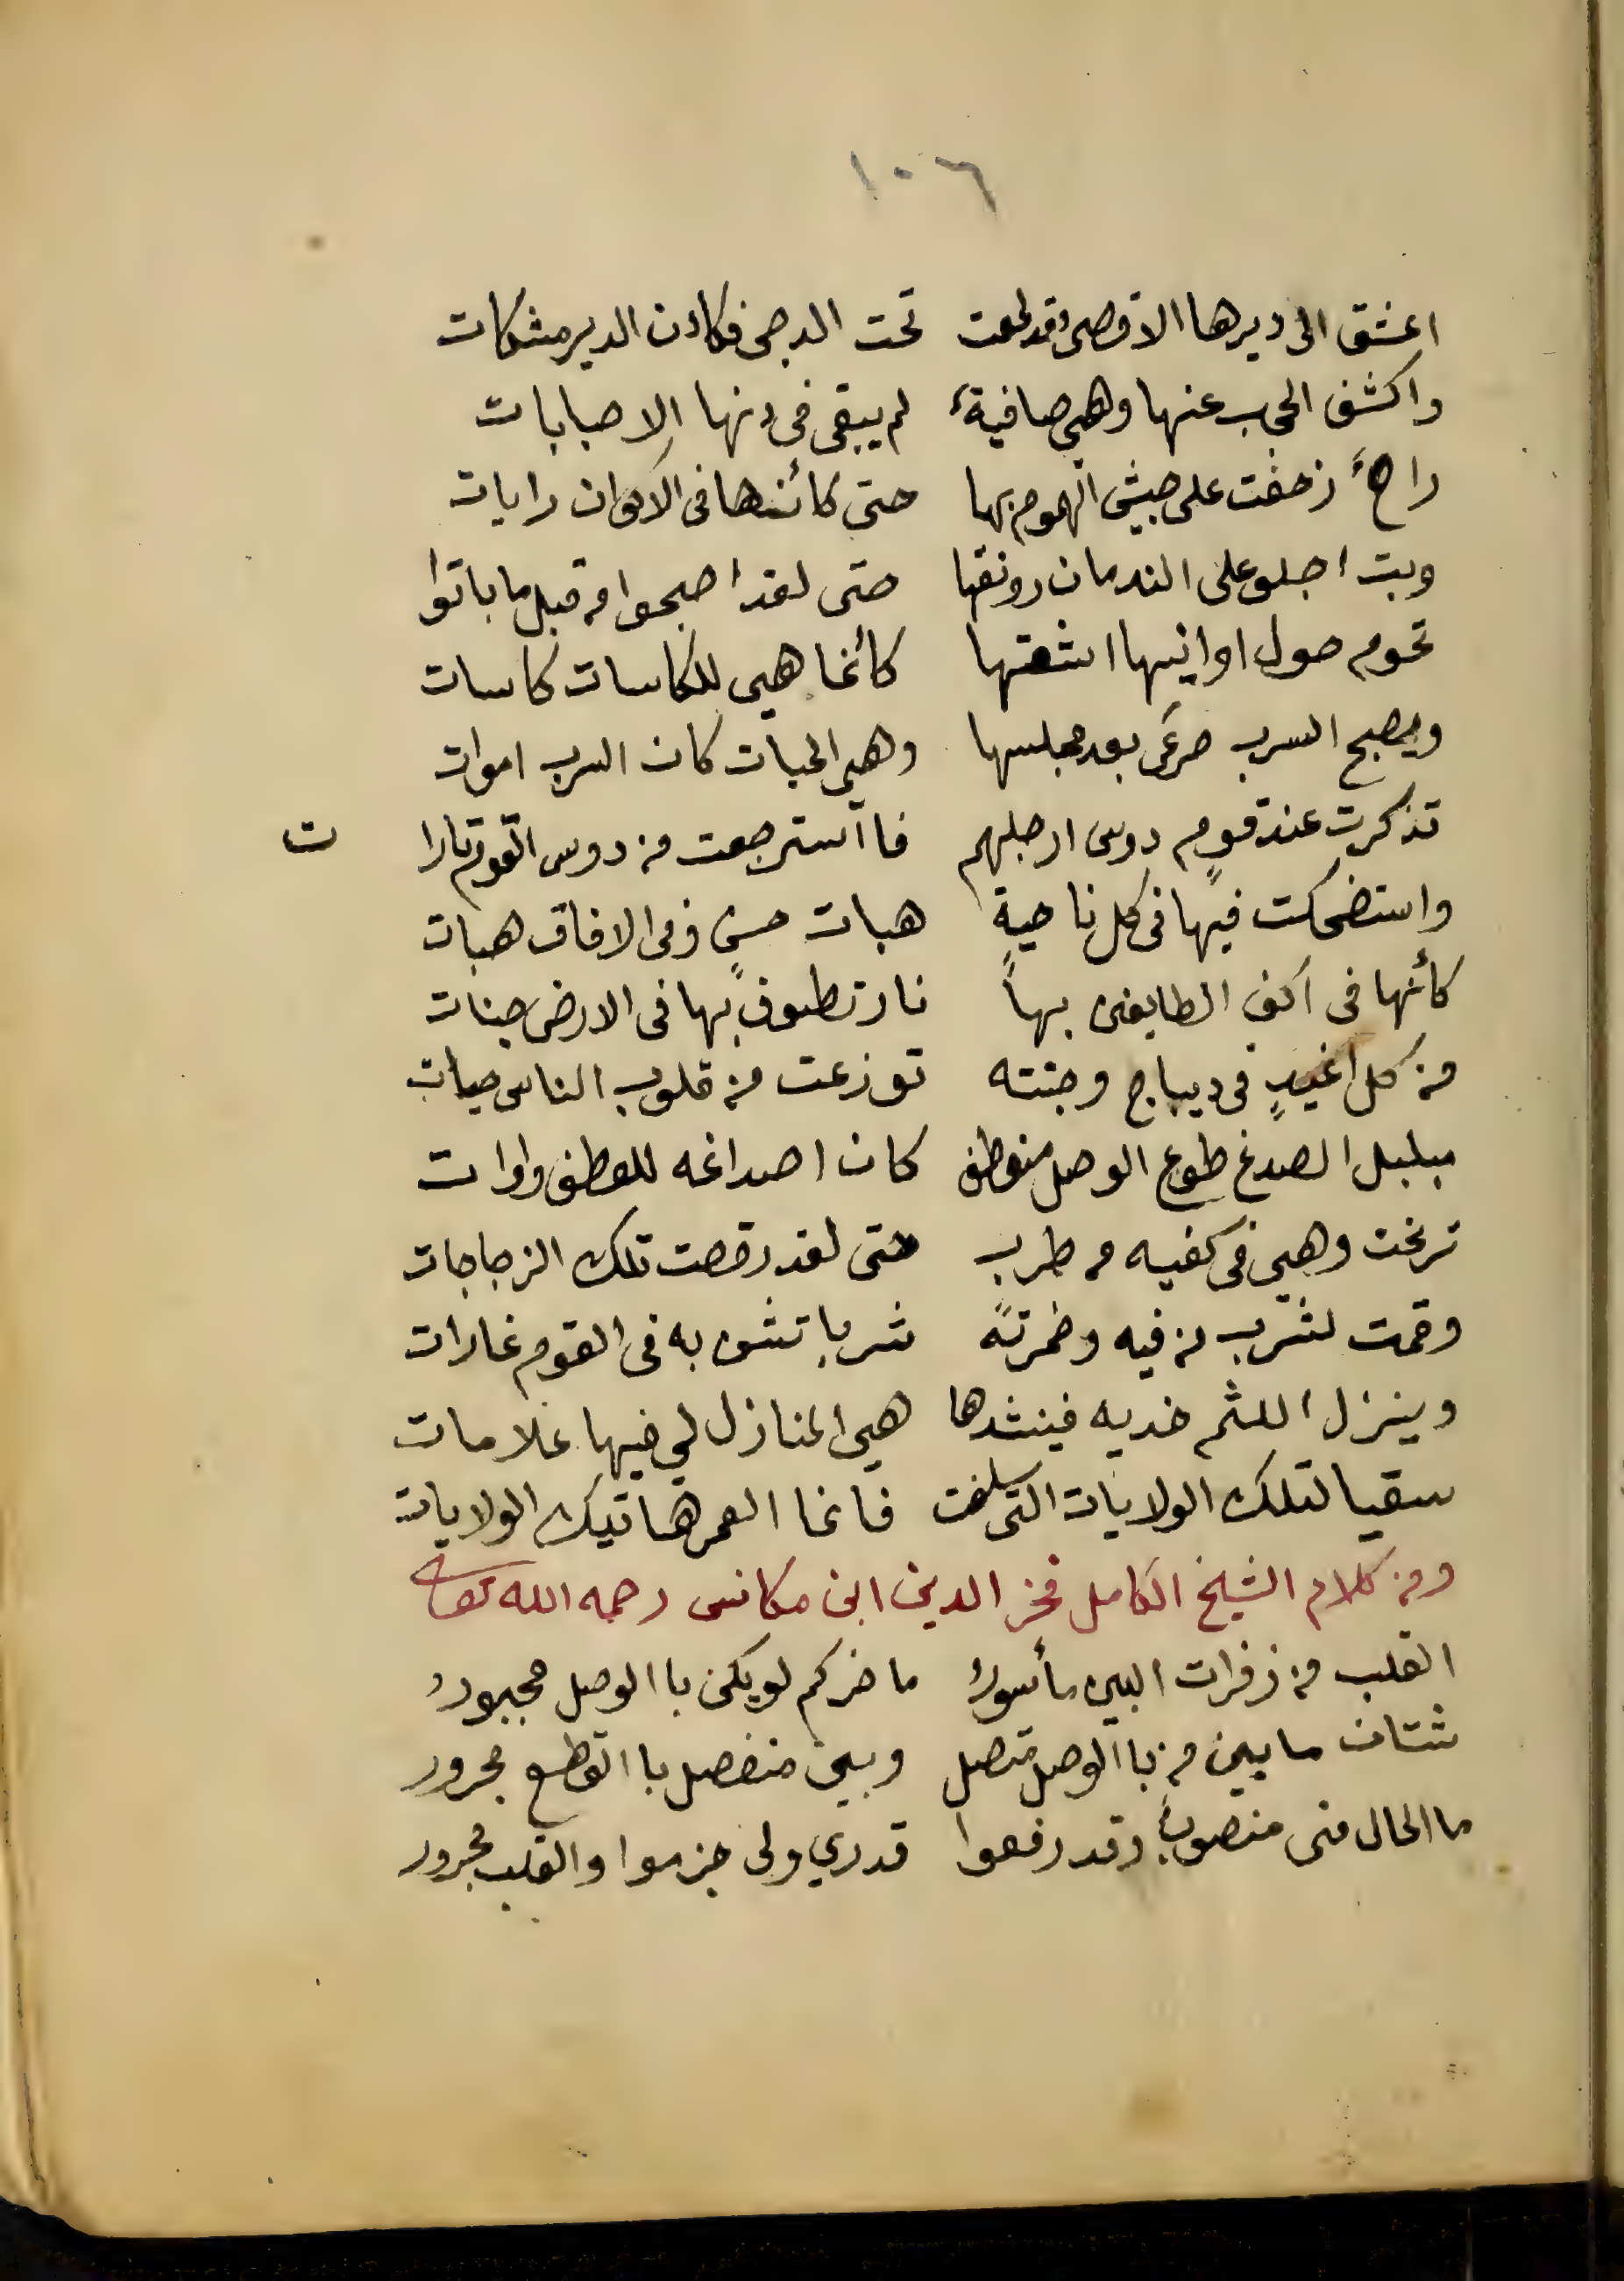 ١٠٦
اعشق الى ديرها الاقصى وقد لمعت تحت الدجى فكان الدير مشكات
واكشف الحجب عنها وهي صافية لم يبقى فى دنها الا صبابات
راحٌ زحفت على جيش الهموم بها حتى كأنها فى الاكوان رايات
وبت اجلو على الندمان رونقها حتى لقد اصبحوا من قبل ما باتوا
تحوم حول اوانيها اشعتها كأنما هي للكاسات كاسات
ويصبح السرب صرعى بعد مجلسها وهي الحيات كان السرب اموات
تذكرت عند قومٍ دوس ارجلهم فا استرجعت من دوس القوم تارات
واستضحكت فيها فى كل ناحية هبات حسن وفى الافاق هبات
كأنها فى اكف الطايفين بها نار تطوف بها فى الارض جنات
من كل اغيدٍ فى ديباج وجنته توزعت من قلوب الناس حبات
مبلبل الصدغ طوع الوصل منعطف كان اصداغه للعطف واوات
ترنحت وهي فى كفيه من طرب حتى لقد رقصت تلك الزجاجات
وقمت لشرب من فيه وخمرته شربا تشن به فى القوم غارات
وينزل اللثم خديه فينشدها هي المنازل لي فيها علامات
سقيا لتلك الولايات التى سلفت فانما العمر هاتيك الولايات
ومن كلام الشيخ الكامل فخر الدين ابن مكانس رحمه الله تعالى
القلب من زفرات البين مأسور ما ضركم لو يكن با الوصل مجبور
شتان ما بين من با الوصل متصل وبين منفصل با القطع مجرور
ما الحال منى منصوبٌ وقد رفعوا قدري ولى جزموا والقلب مجرور